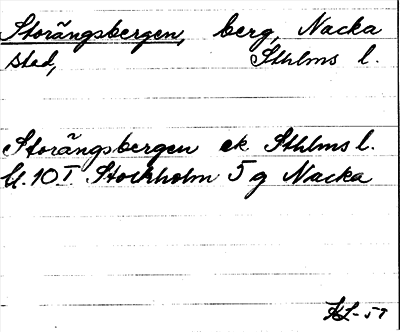 Storängsbergen, berg, Nacka
stad, Sthlms l.
Storängsbergen ek Sthlms l.
U. 10 I Stockholm 5 g Nacka